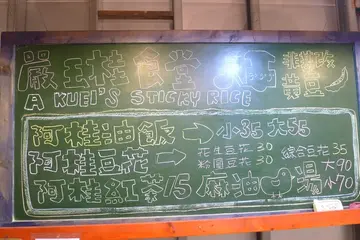 嚴玉桂食堂
A KUEI'S STICKY RICE
阿桂油飯→小35 大55
阿桂豆花→花生豆花30 綜合豆花35
粉圓豆花30
阿桂紅茶15 麻油湯 大90
小70